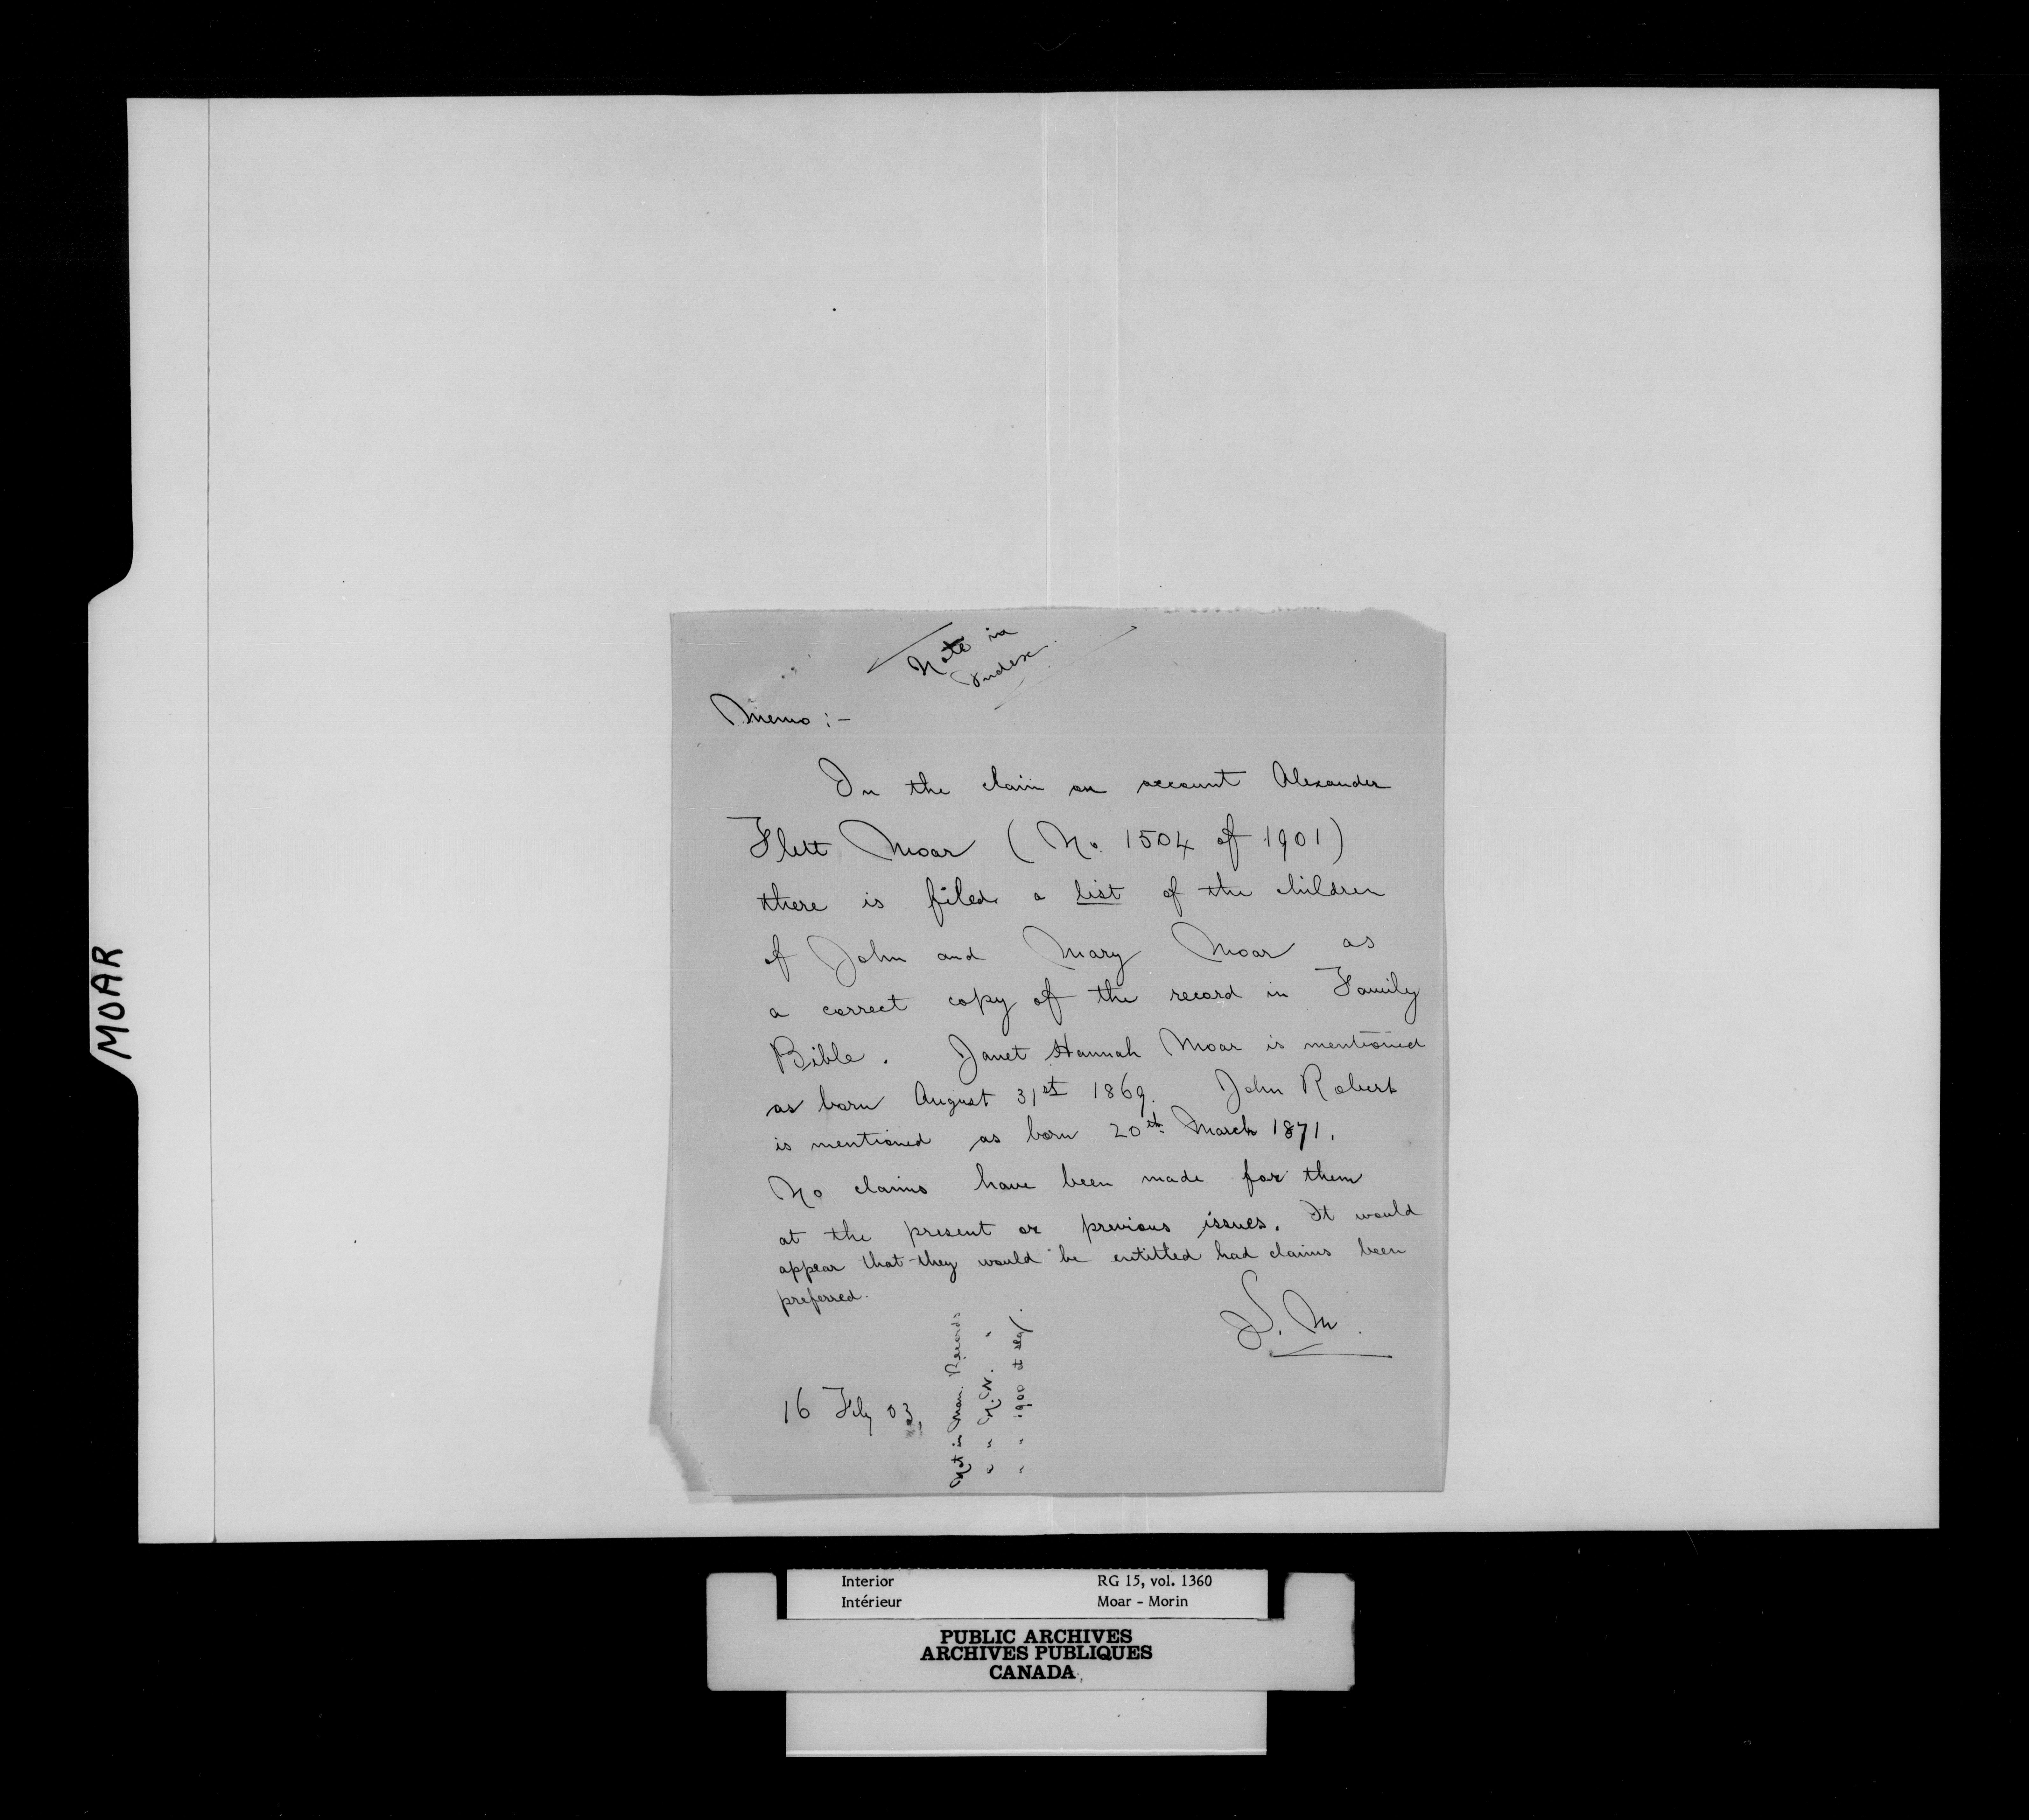 Note in
Index
Memo :-
In the claim on account Alexander
Flett Moar ( No. 1504 of 1901)
there is filed a list of the children
of John and Mary Moar as
a correct copy of the record in Family
Bible. Janet Hannah Moar is mentioned
as born August 31st 1869. John Robert
is mentioned as born 20th March 1871.
No claims have been made for them
at the present or previous issues. It would
appear that they would be entitled had claims been
preferred.
16 Feby 03
Not in Man. Records
" " N.W. "
" " 1900 et seq.
MOAR
Interior RG 15, vol. 1360
Intérieur Moar - Morin
PUBLIC ARCHIVES
ARCHIVES PUBLIQUES
CANADA